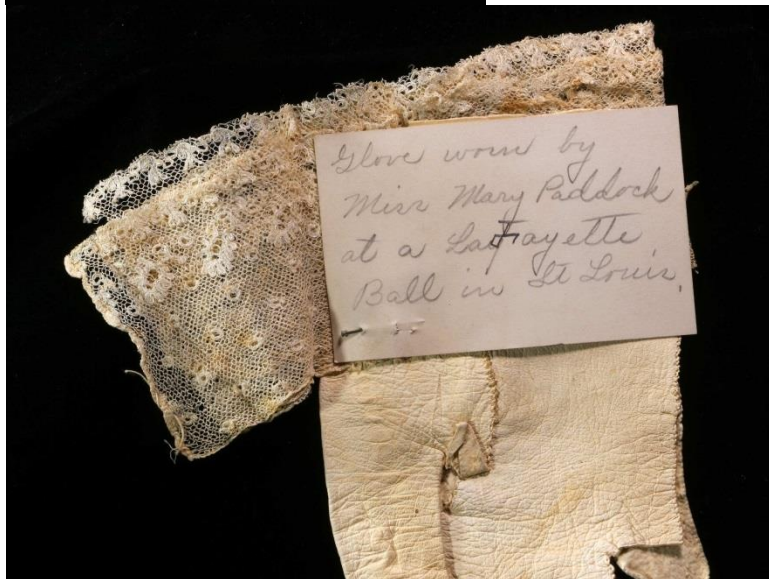 Glove worn by
Miss Mary Paddock
at a LaFayette
Ball in St Louis.